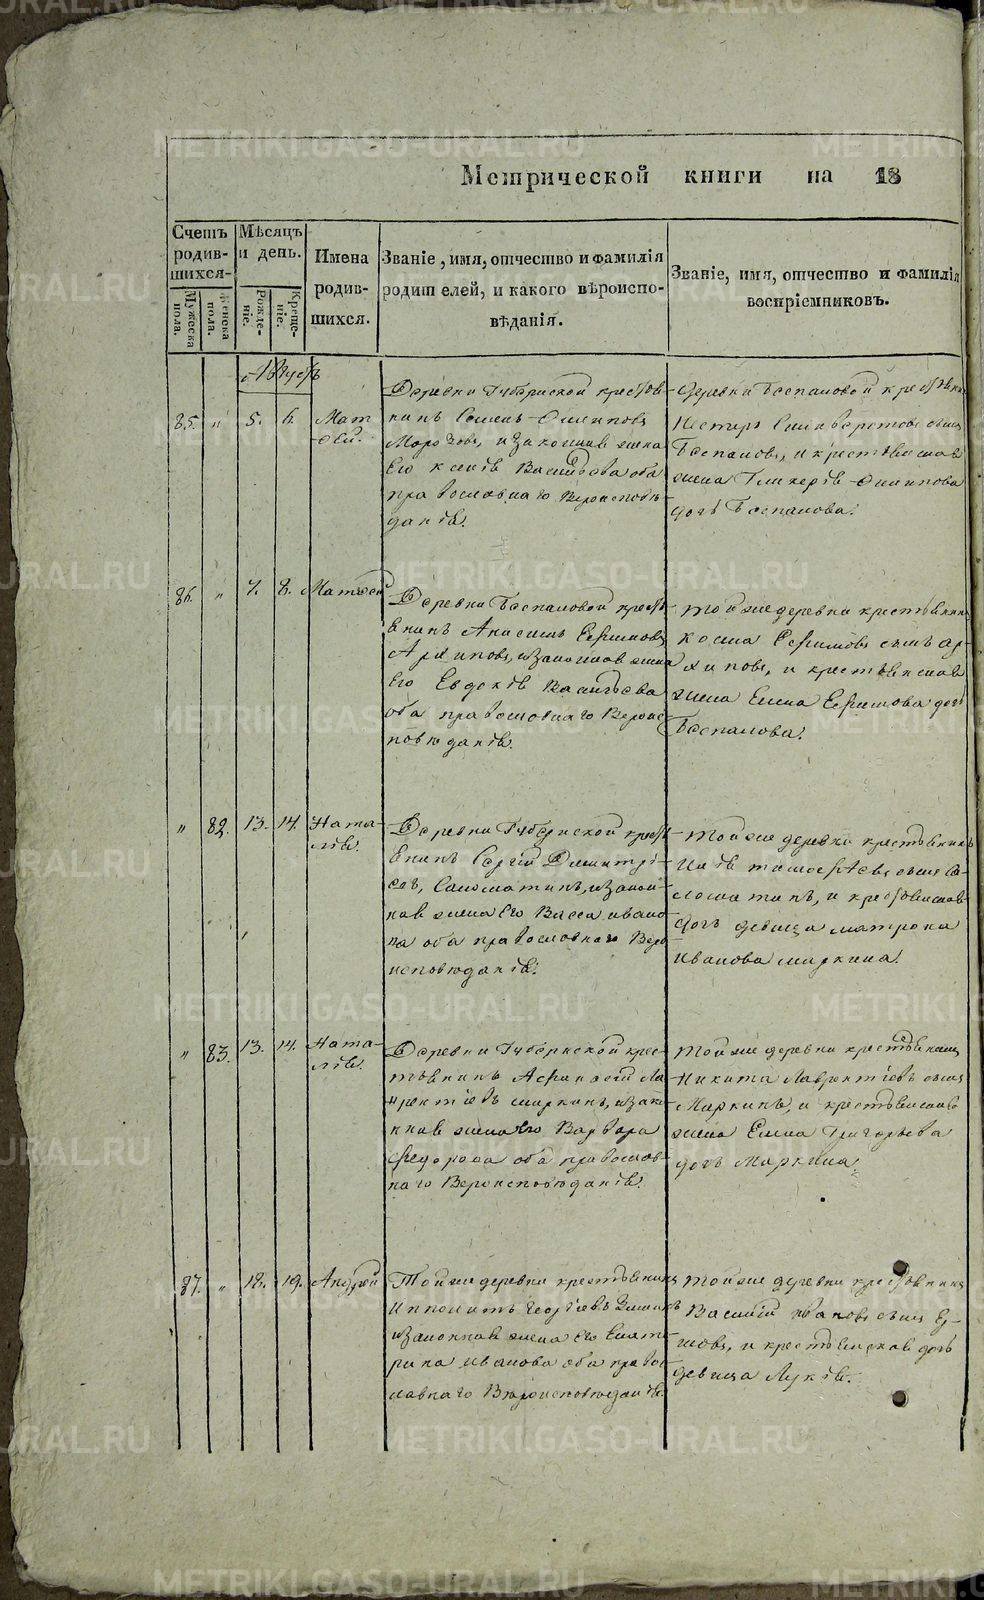 Метрической книги на 18
Счетъ родив-шихся
Мѣсяцъ и день.
Имена родив-шихся.
Званіе, имя, отчество и фамилія родителей, и какого вѣроиспо-вѣданія.
Званіе, имя, отчество и фамилія воспріемниковъ.
Мужеска пола.
Женска пола.
Рожде-ніе.
Креще-ніе.
Августъ
85. " 5. 6. Мат
ѳей.
Деревни Губернской крестья
нинъ Семенъ Осиповъ
Морозовъ, и законная жена
его Васильева оба
православнаго Вероисповѣ
данія.
Деревни Беспаловой
Петръ сынъ
Беспаловъ, и крестьянская
жена Гликерія Осипова
дочь Беспалова.
86. " 7. 8. Матѳей
Деревни Беспаловой кресть
енинъ Анисимъ Ефимовъ
Архиповъ, и законная жена
его Евдокія Васильева
оба православнаго Вероис
повѣданія.
Той же деревни крестьянинъ
Косма Ефимовъ сынъ Ар-
хиповъ, и крестьянская
жена Елена Ефимова дочь
Беспалова.
" 82. 13. 14. Ната-
лія.
Деревни Губернской кресть
енинъ Сергей Димитрі-
евъ, Саломатинъ, и закон
ная жена его Васса Ивано
ва оба православнаго Веро
исповѣданія.
Той же деревни крестьянинъ
Илія Тимофѣевъ сынъ Са-
ломатинъ, и крестьянская
дочь девица Матрона
Иванова Маркина.
" 83. 13. 14. Ната-
лія.
Деревни Губернской крес-
тьянинъ Афанасей Ла
врентіевъ Маркинъ, и зако
нная жена его Варвара
Федорова оба православ-
наго Вероисповѣданія.
Той же деревни крестьянинъ
Никита Лаврентіевъ сынъ
Маркинъ, и крестьянская
жена Елена Григорьева
дочь Маркина.
87. " 18. 19. Андрей
Той же деревни крестьянинъ
Ипполитъ Георгіевъ
и законная жена его Екате
рина Иванова оба право
славнаго Вероисповѣданія.
Той же деревни крестьянинъ
Василій Ивановъ сынъ
и крестьянская дочь
девица Лукія.